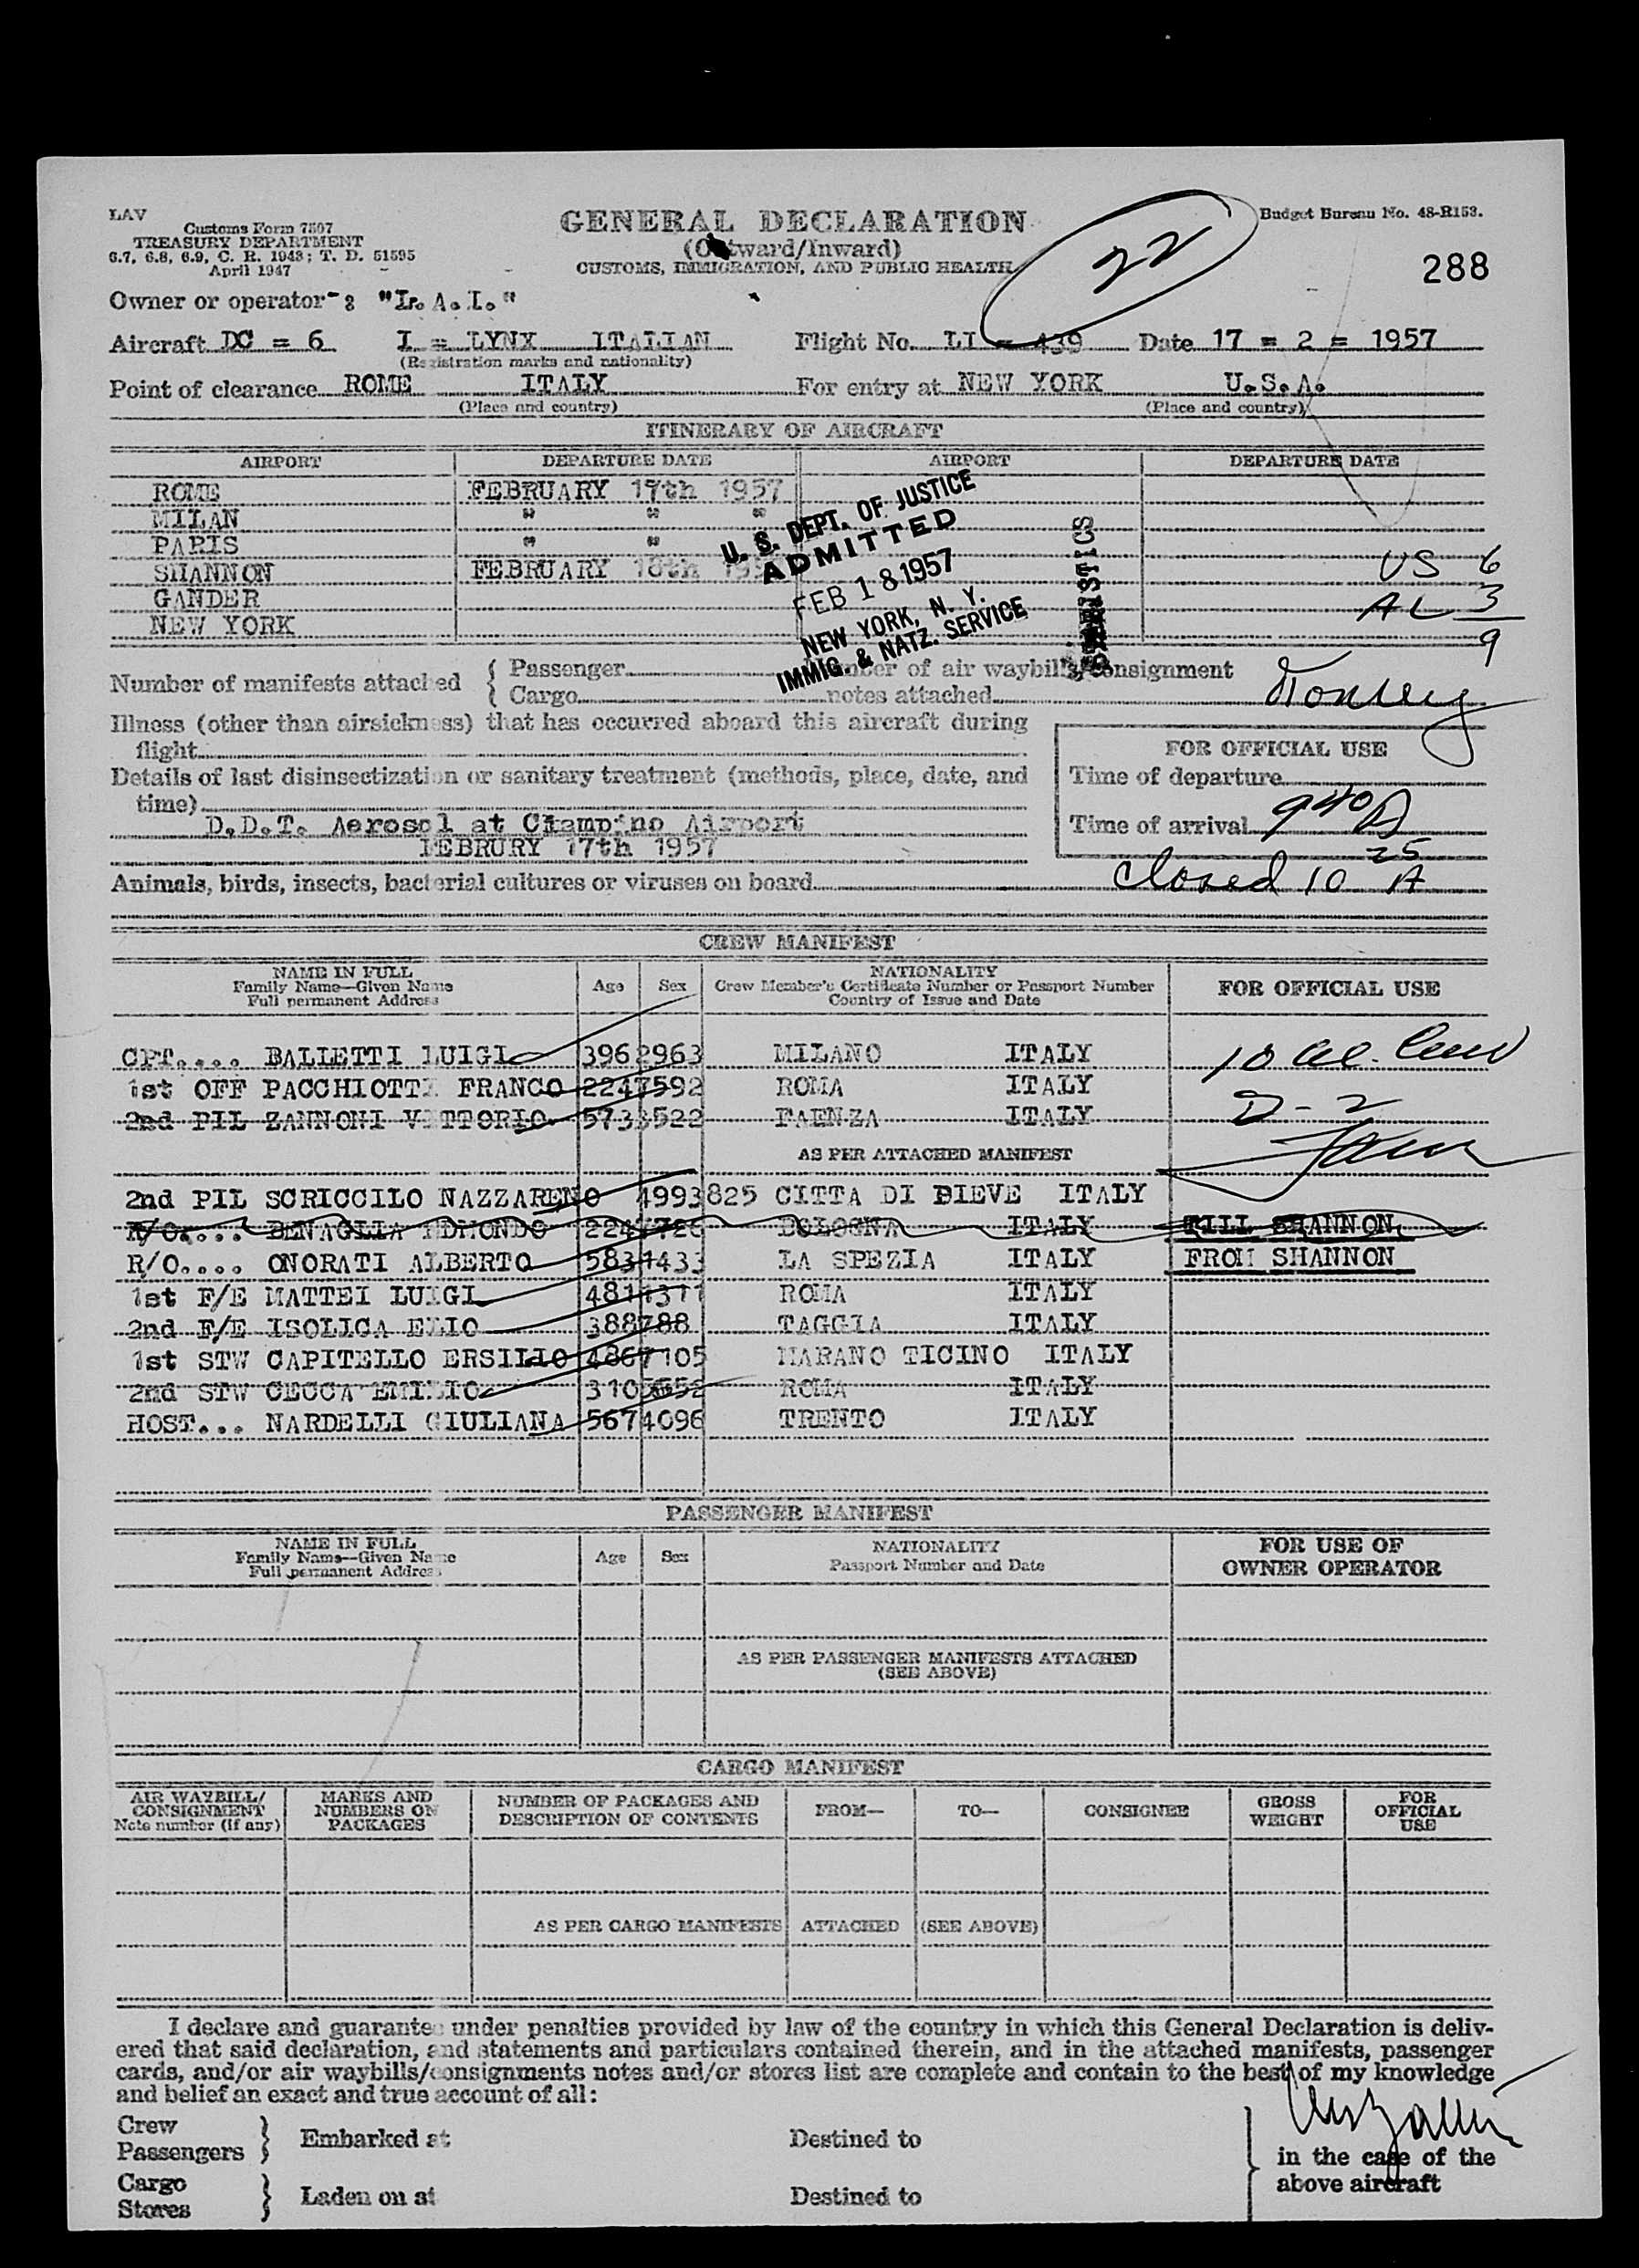 LAV
Customs Form 7507
TREASURY DEPARTMENT
6.7, 6.8, 6.9, C. R. 1943; T. D. 51595
April 1947
GENERAL DECLARATION
(Outward/Inward)
CUSTOMS, IMMIGRATION, AND PUBLIC HEALTH
22
Budget Bureau No. 48-R153.
288
Owner or operator : "L.A.I."
Aircraft DC = 6 I = LYNX ITALIAN Flight No. LI = 439 Date 17 = 2 = 1957
(Registration marks and nationality)
Point of clearance ROME ITALY For entry at NEW YORK U.S.A.
(Place and country) (Place and country)
ITINERARY OF AIRCRAFT
AIRPORT DEPARTURE DATE AIRPORT DEPARTURE DATE
ROME FEBRUARY 17th 1957
MILAN " " "
PARIS " "
SHANNON FEBRUARY 18th 195
GANDER
NEW YORK
U. S. DEPT. OF JUSTICE
ADMITTED
FEB 18 1957
NEW YORK, N. Y.
IMMIG. & NATZ. SERVICE
STATISTICS
US 6
AL 3
9
Number of manifests attached { Passenger Number of air waybills/consignment
{ Cargo notes attached
Illness (other than airsickness) that has occurred aboard this aircraft during
flight
Details of last disinsectization or sanitary treatment (methods, place, date, and
time)
D.D.T. Aerosol at Ciampino Airport
FEBRURY 17th 1957
FOR OFFICIAL USE
Time of departure
Time of arrival 940A
closed 10 25 A
Animals, birds, insects, bacterial cultures or viruses on board
CREW MANIFEST
NAME IN FULL
Family Name—Given Name
Full permanent Address
Age Sex
NATIONALITY
Crew Member's Certificate Number or Passport Number
Country of Issue and Date
FOR OFFICIAL USE
CPT.... BALIETTI LUIGI 3962963 MILANO ITALY
1st OFF PACCHIOTTI FRANCO 2247592 ROMA ITALY
2nd PIL ZANNONI VITTORIO 5733522 FAENZA ITALY
D-2
AS PER ATTACHED MANIFEST
2nd PIL SCRICCILO NAZZARENO 4993825 CITTA DI PIEVE ITALY
R/O.... BENAGLIA EDMONDO 2247726 BOLOGNA ITALY TILL SHANNON
R/O.... ONORATI ALBERTO 5831433 LA SPEZIA ITALY FROM SHANNON
1st F/E MATTEI LUIGI 4811311 ROMA ITALY
2nd F/E ISOLICA ELIO 388788 TAGGIA ITALY
1st STW CAPITELLO ERSILIO 4867105 MARANO TICINO ITALY
2nd STW CECCA EMILIO ROMA ITALY
HOST... NARDELLI GIULIANA 5674096 TRENTO ITALY
PASSENGER MANIFEST
NAME IN FULL
Family Name—Given Name
Full permanent Address
Age Sex
NATIONALITY
Passport Number and Date
FOR USE OF
OWNER OPERATOR
AS PER PASSENGER MANIFESTS ATTACHED
(SEE ABOVE)
CARGO MANIFEST
AIR WAYBILL/
CONSIGNMENT
Note number (if any)
MARKS AND
NUMBERS ON
PACKAGES
NUMBER OF PACKAGES AND
DESCRIPTION OF CONTENTS
FROM— TO— CONSIGNEE
GROSS
WEIGHT
FOR
OFFICIAL
USE
AS PER CARGO MANIFESTS ATTACHED (SEE ABOVE)
I declare and guarantee under penalties provided by law of the country in which this General Declaration is deliv-
ered that said declaration, and statements and particulars contained therein, and in the attached manifests, passenger
cards, and/or air waybills/consignments notes and/or stores list are complete and contain to the best of my knowledge
and belief an exact and true account of all:
Crew
Passengers } Embarked at Destined to
Cargo
Stores } Laden on at Destined to
in the case of the
above aircraft